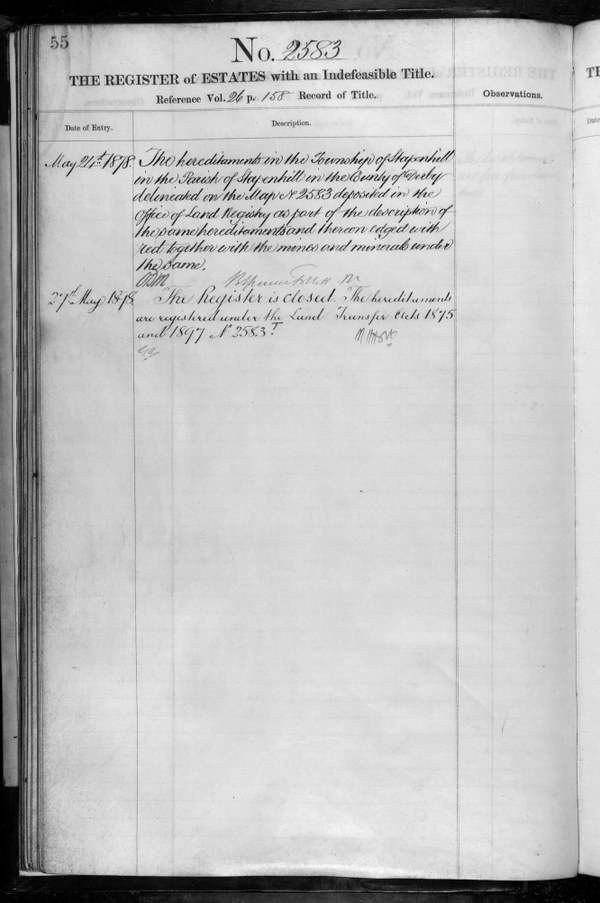 55
No. 2583
THE REGISTER of ESTATES with an Indefeasible Title.
Reference Vol. 26 p. 158 Record of Title.
Observations.
Date of Entry.
Description.
May 24th 1878 The hereditaments in the Township of Stapenhill
in the Parish of Stapenhill in the County of Derby
delineated on the Map No 2583 deposited in the
Office of Land Registry as part of the description of
the same hereditaments and thereon edged with
red together with the mines and minerals under
the same.
May The Register is closed. The hereditaments
are registered under the Land Transfer Acts 1875
and 1897 No 2583 T